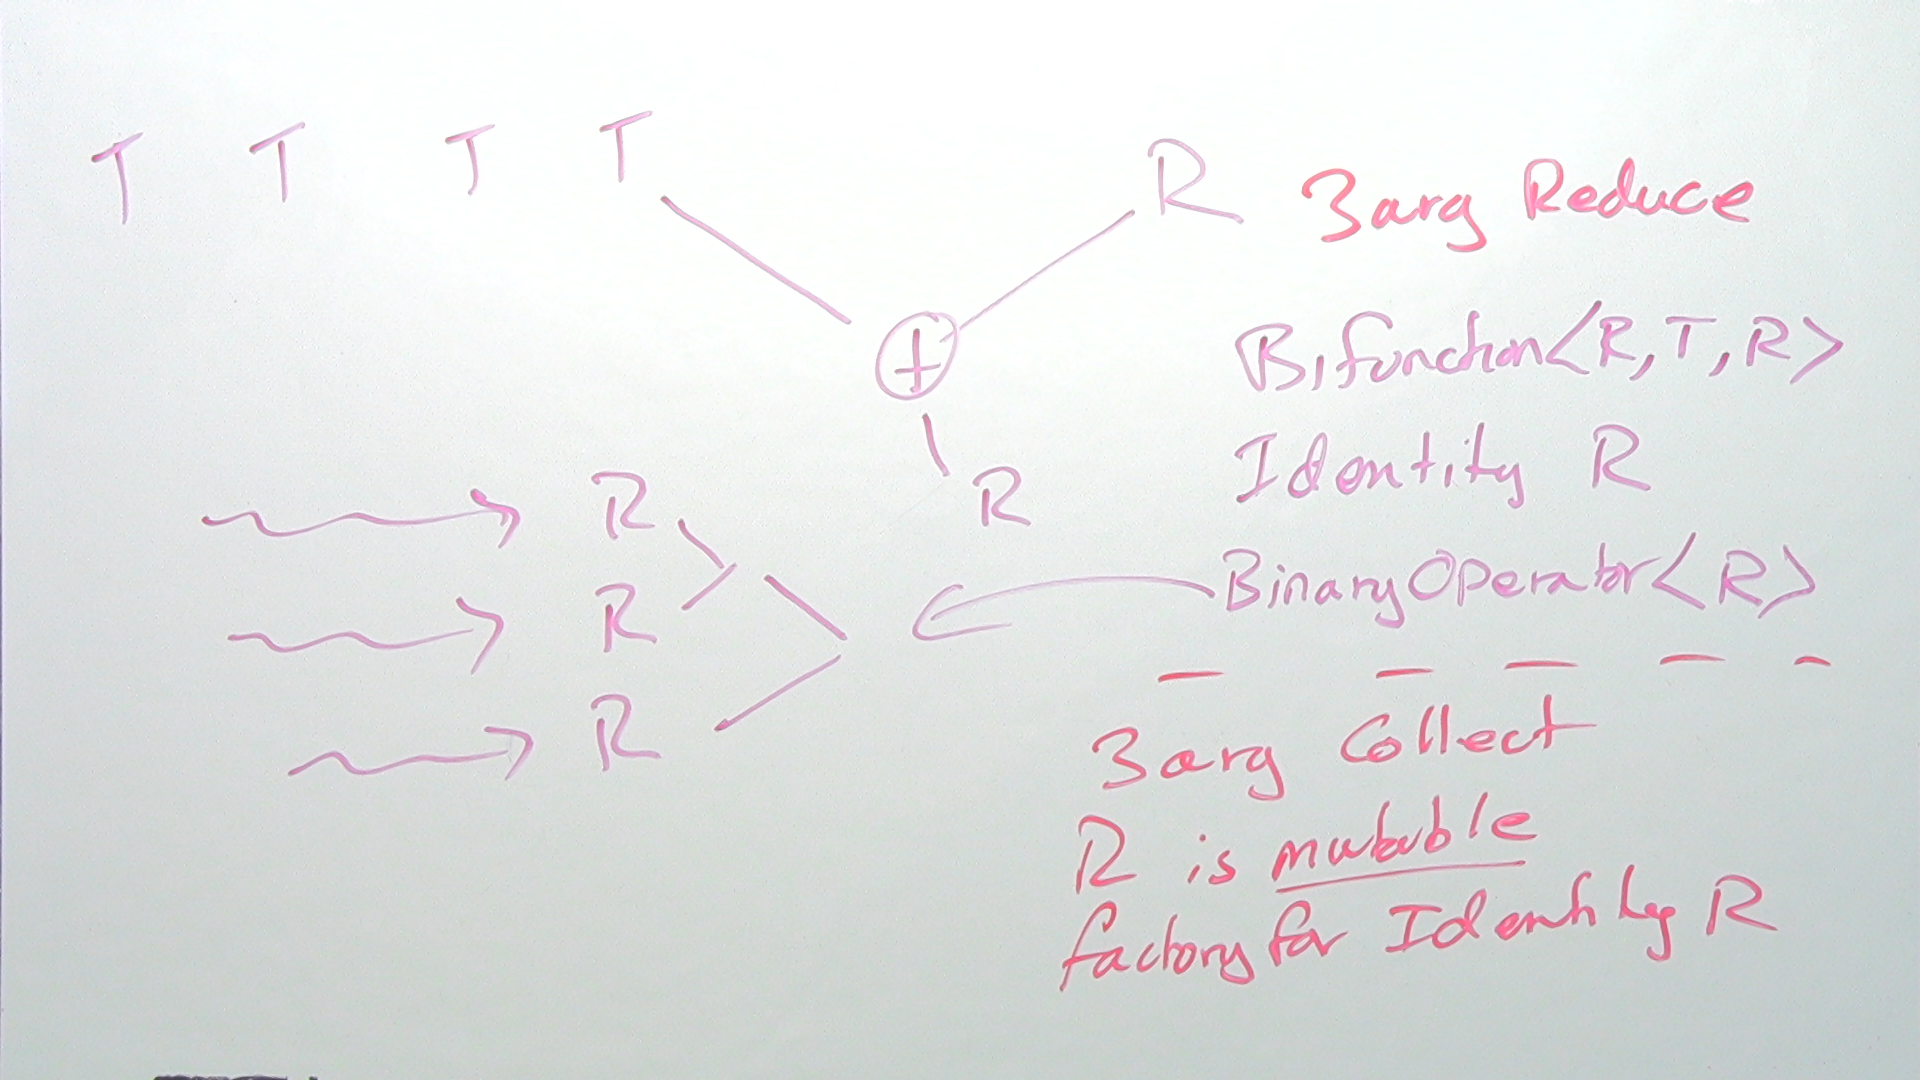 T T T T R 3arg Reduce
+
Bifunction<R,T,R>
R
Identity R
R
BinaryOperator<R>
R
R
3arg Collect
R is mutable
factory for Identity R